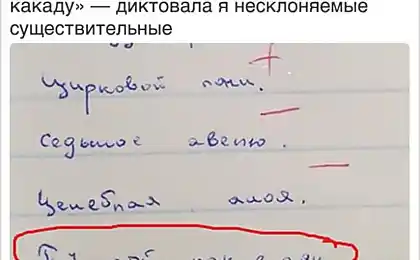 какаду» — диктовала я несклоняемые
существительные
Цирковой пони.
Седьмое авеню.
Целебная алоя.